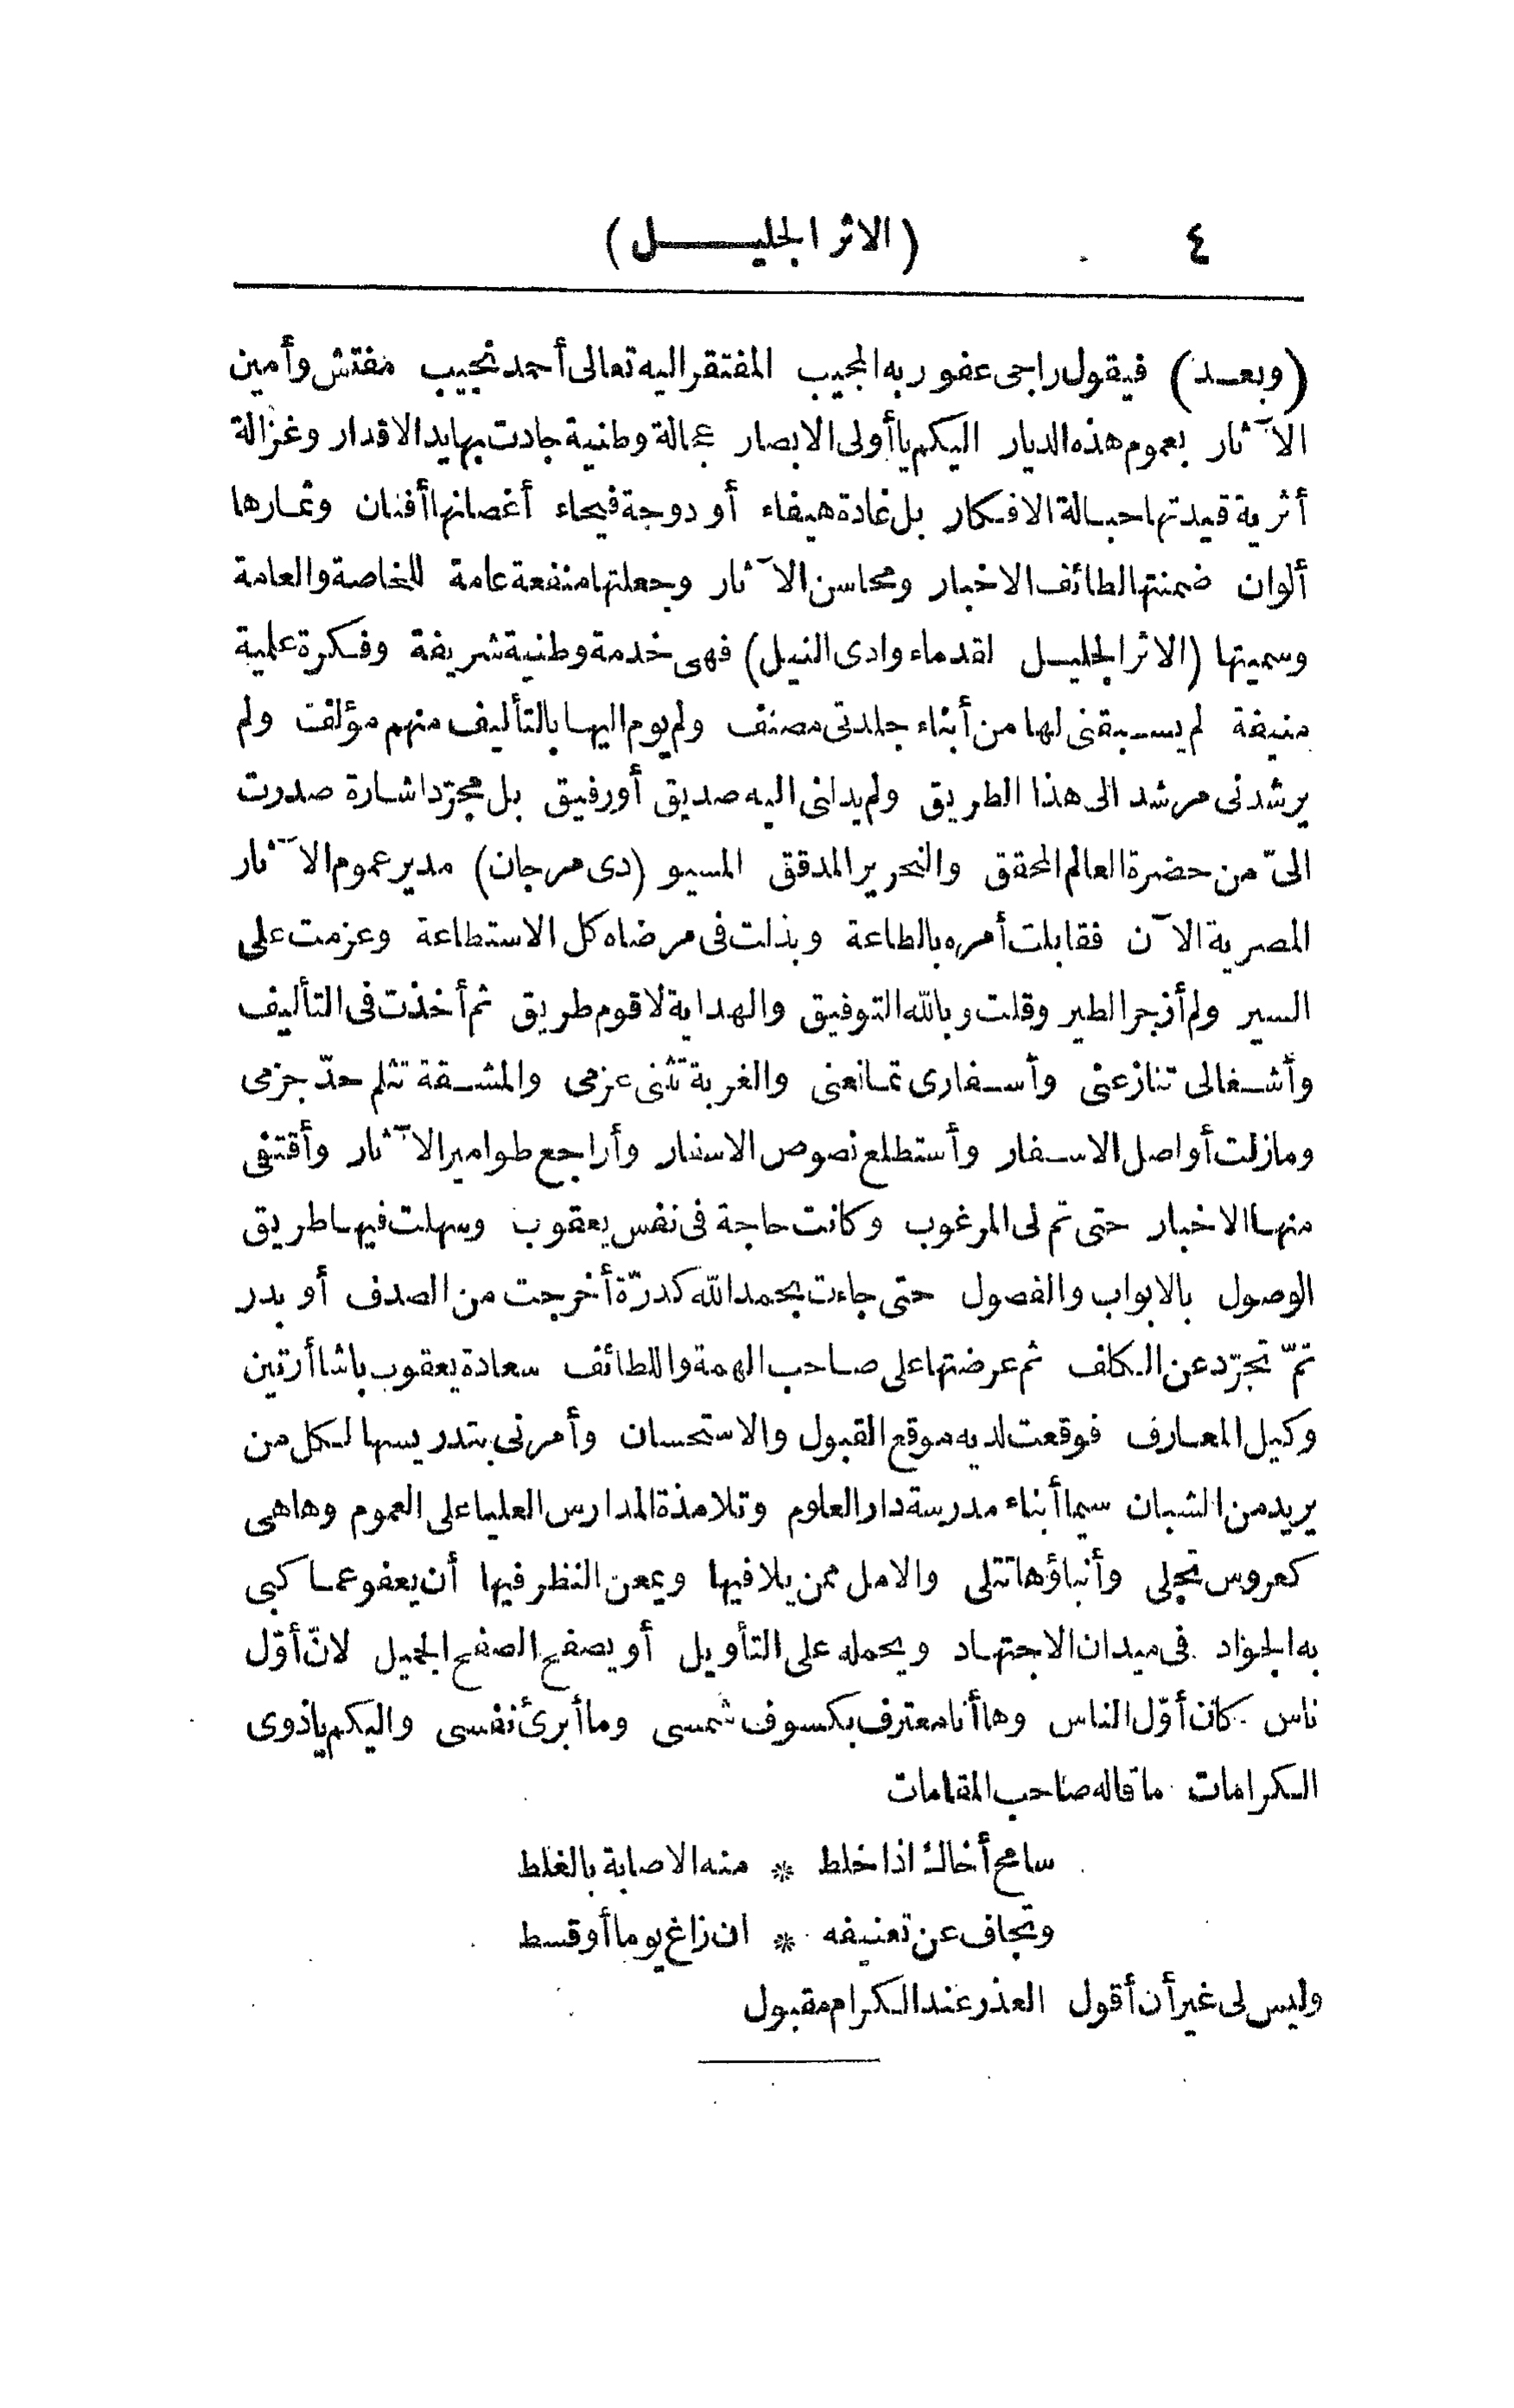 ٤ (الاثر الجليـــل)
(وبعـد) فيقول راجى عفو ربه المجيب المفتقر اليه تعالى أحمد نجيب مفتش وأمين
الآثار بعموم هذه الديار اليكم يا أولى الابصار عجالة وطنية جادت بها يد الاقدار وغزالة
أثرية قيدتها حبالة الافكار بل غادة هيفاء أو دوحة فيحاء أغصانها أفنان وثمارها
ألوان ضمنتها لطائف الاخبار ومحاسن الآثار وجعلتها منفعة عامة للخاصة والعامة
وسميتها (الاثر الجليل لقدماء وادى النيل) فهى خدمة وطنية شريفة وفكرة علمية
منيفة لم يسبقنى لها من أبناء جلدتى مصنف ولم يوم اليها بالتأليف منهم مؤلف ولم
يرشدنى مرشد الى هذا الطريق ولم يدلنى اليه صديق أو رفيق بل مجرّد اشارة صدرت
الىّ من حضرة العالم المحقق والنحرير المدقق المسيو (دى مرجان) مدير عموم الآثار
المصرية الآن فقابلت أمره بالطاعة وبذلت فى مرضاه كل الاستطاعة وعزمت على
السير ولم أزجر الطير وقلت وبالله التوفيق والهداية لاقوم طريق ثم أخذت فى التأليف
وأشغالى تنازعنى وأسفارى تمانعنى والغربة تثنى عزمى والمشقة تثلم حدّ حزمى
ومازلت أواصل الاسفار وأستطلع نصوص الاسفار وأراجع طوامير الآثار وأقتفى
منها الاخبار حتى تم لى المرغوب وكانت حاجة فى نفس يعقوب وسهلت فيها طريق
الوصول بالابواب والفصول حتى جاءت بحمد الله كدرّة أخرجت من الصدف أو بدر
تمّ تجرّد عن الكلف ثم عرضتها على صاحب الهمة واللطائف سعادة يعقوب باشا أرتين
وكيل المعارف فوقعت لديه موقع القبول والاستحسان وأمرنى بتدريسها لكل من
يريد من الشبان سيما أبناء مدرسة دار العلوم وتلامذة المدارس العليا على العموم وها هى
كعروس تجلى وأنباؤها تتلى والامل ممن يلافيها ويمعن النظر فيها أن يعفو عما كبى
به الجواد فى ميدان الاجتهاد ويحمله على التأويل أو يصفح الصفح الجميل لانّ أوّل
ناس كان أوّل الناس وها أنا معترف بكسوف شمسى وما أبرئ نفسى واليكم ياذوى
الكرامات ما قاله صاحب المقامات
سامح أخاك اذا خلط * منه الاصابة بالغلط
وتجاف عن تعنيفه * ان زاغ يوما أو قسط
وليس لى غير أن أقول العذر عند الكرام مقبول